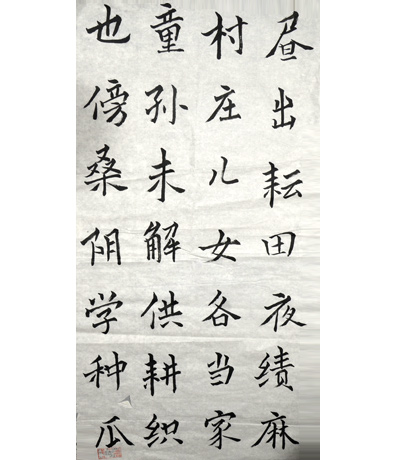 昼出耘田夜绩麻
村庄儿女各当家
童孙未解供耕织
也傍桑阴学种瓜